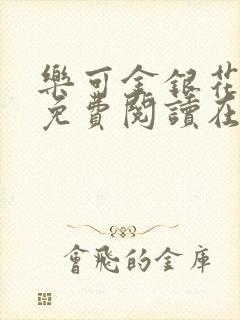 樂可金銀花
免費閱讀在
會飛的金庫